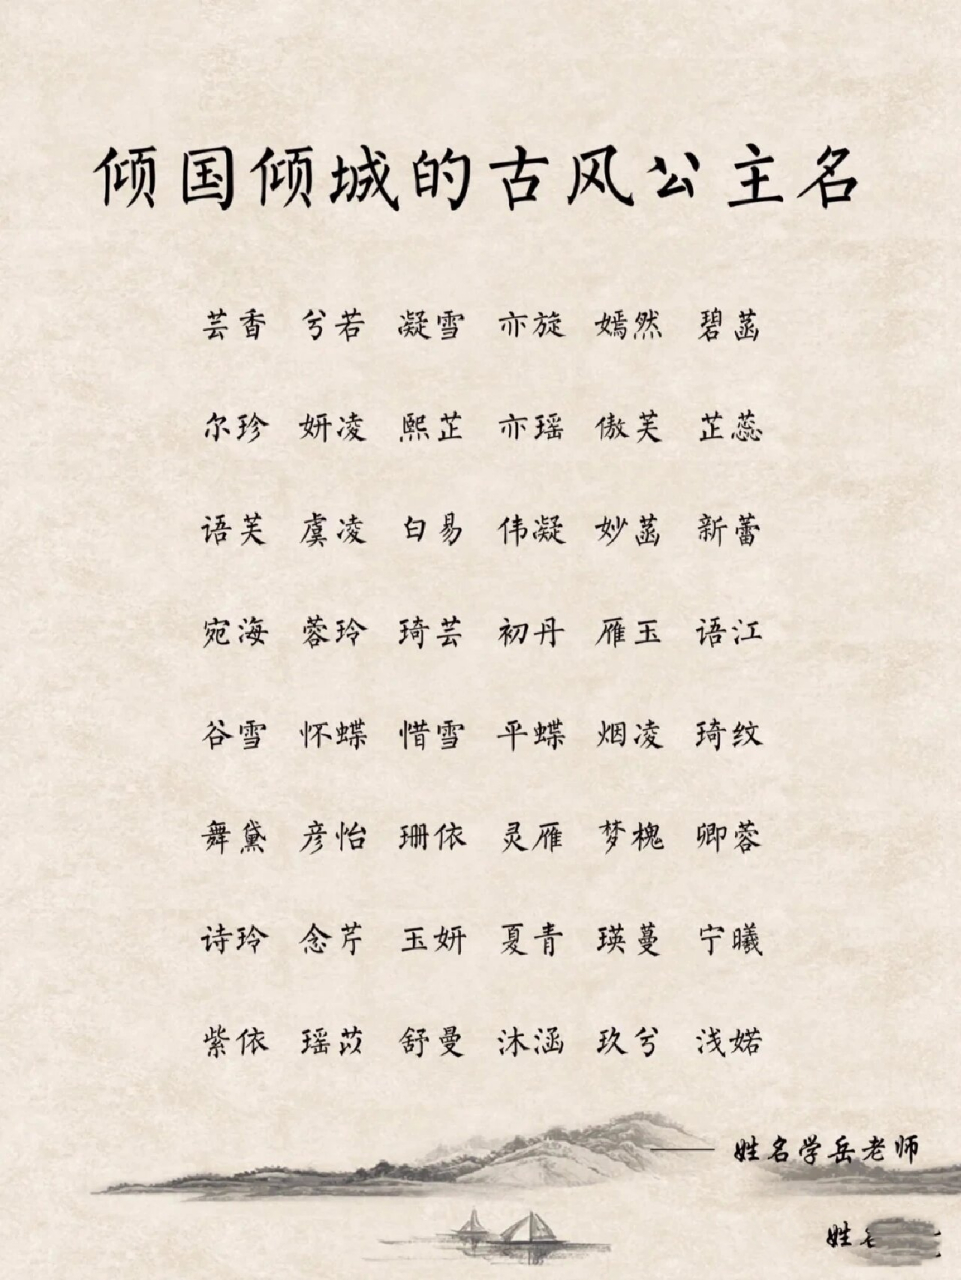 倾国倾城的古风公主名
芸香 兮若 凝雪 亦旋 嫣然 碧菡
尔珍 妍凌 熙芷 亦瑶 傲芙 芷蕊
语芙 虞凌 白易 伟凝 妙菡 新蕾
宛海 蓉玲 琦芸 初丹 雁玉 语江
谷雪 怀蝶 惜雪 平蝶 烟凌 琦纹
舞黛 彦怡 珊依 灵雁 梦槐 卿蓉
诗玲 念芹 玉妍 夏青 瑛蔓 宁曦
紫依 瑶苡 舒曼 沐涵 玖兮 浅婼
——姓名学岳老师
姓